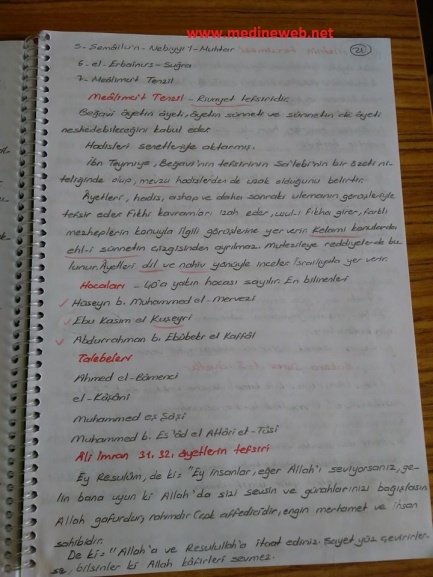 www.medineweb.net
21
5- Şemâilü'n- Nebiyyi'l-Muhtar
6- el- Erbainu's- Suğra
7- Meâlimü't Tenzil
Meâlimü't Tenzil - Rivayet tefsiridir.
Beğavi âyetin âyeti, âyetin sünneti ve sünnetin de âyeti
neshedebileceğini kabul eder
Hadisleri senetleriyle aktarmış.
İbn Teymiye, Beğavi'nin tefsirinin Sa'lebi'nin bir özeti ni-
teliğinde olup, mevzu hadislerden de uzak olduğunu belirtir.
Âyetleri, hadis, ashap ve daha sonraki ulemanın görüşleriyle
tefsir eder Fıkhi kavramları izah eder, usul-i fıkha girer, farklı
mezheplerin konuyla ilgili görüşlerine yer verir. Kelami konularda
ehl-i sünnetin çizgisinden ayrılmaz Mutezileye reddiyelerde bu
lunur. Âyetleri dil ve nahiv yönüyle inceler İsrailiyata yer verir.
Hocaları - 40'a yakın hocası sayılır. En bilinenleri
Hüseyn b. Muhammed el-Mervezi
Ebu Kasım al Kuşeyri
Abdurrahman b. Ebubekr el Kaffâl
Talebeleri
Ahmed el-
el-Kâşânî
Muhammed eş Şâşi
Muhammed b. Es'âd el Attâri et-Tûsi
Ali İmran 31, 32, âyetlerin tefsiri
Ey Resulüm, de ki= "Ey insanlar, eğer Allah'ı seviyorsanız, ge-
lin bana uyun ki Allah'da sizi sevsin ve günahlarınızı bağışlasın
Allah gafurdur, rahimdir (çok affedicidir, engin merhamet ve ihsan
sahibidir.
De ki= "Allah'a ve Resulullah'a itaat ediniz. Şayet yüz çevirirler-
se, bilsinler ki Allah kâfirleri sevmez.